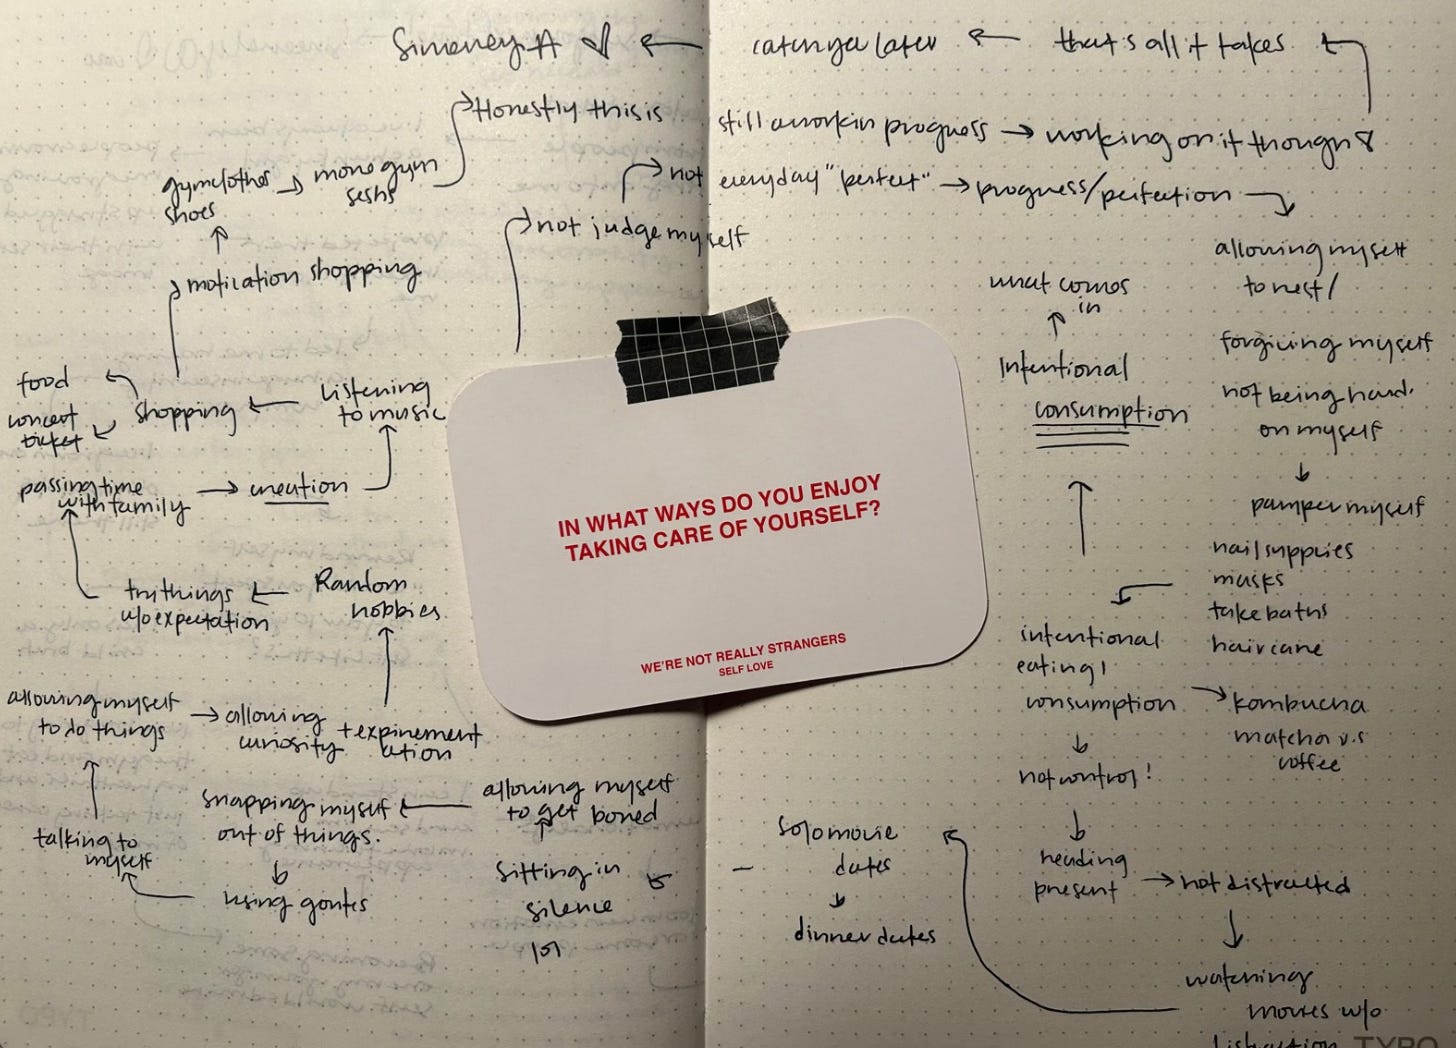 IN WHAT WAYS DO YOU ENJOY
TAKING CARE OF YOURSELF?
WE'RE NOT REALLY STRANGERS
SELF LOVE
not judge myself
not everyday "perfect"
progress/perfection
allowing myself
to rest/
forgiving myself
not being hard
on myself
pamper myself
nail supplies
masks
take baths
hair care
intentional
eating/
consumption
kombucha
matcha v.s
coffee
Intentional
consumption
what comes
in
not control!
reading
present
not distracted
watching
movies w/o
distraction
solo movie
dates
dinner dates
sitting in
silence
lol
allowing myself
to get bored
snapping myself
out of things.
using
talking to
myself
allowing myself
to do things
allowing
curiosity
+experiment
ation
Random
hobbies
try things
w/o expectation
passing time
with family
creation
listening
to music
shopping
food
concert
ticket
motivation shopping
gym clothes
shoes
more gym
seshs
Honestly this is still a work in progress
working on it though &
that's all it takes
catch ya later
TYPO